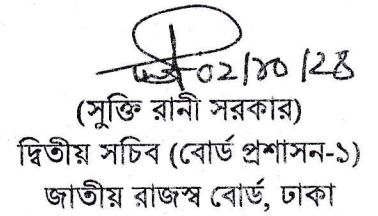 ০২/১০/২৪
(সুক্তি রানী সরকার)
দ্বিতীয় সচিব (বোর্ড প্রশাসন-১)
জাতীয় রাজস্ব বোর্ড, ঢাকা